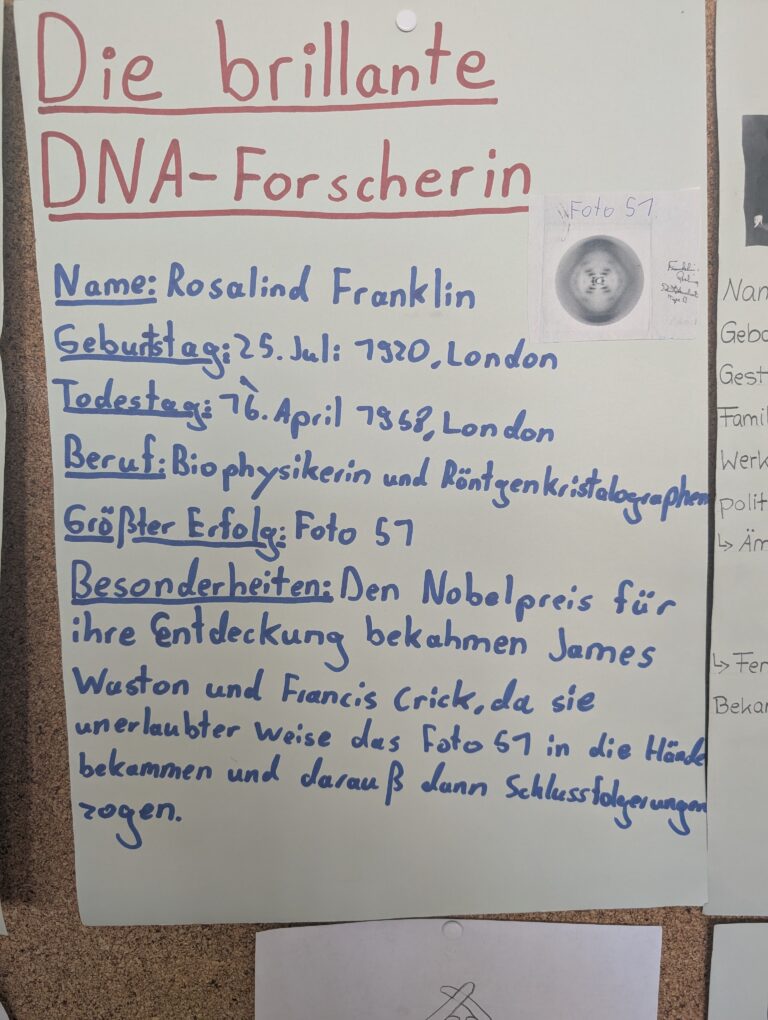 Die brillante
DNA-Forscherin
Foto 51
Name: Rosalind Franklin
Geburtstag: 25. Juli 1920, London
Todestag: 16. April 1958, London
Beruf: Biophysikerin und Röntgenkristalographen
Größter Erfolg: Foto 51
Besonderheiten: Den Nobelpreis für
ihre Entdeckung bekahmen James
Waston und Francis Crick, da sie
unerlaubter Weise das Foto 51 in die Hände
bekammen und darauß dann Schlussfolgerungen
zogen.
Nam
Gebo
Gest
Famil
Werk
polit
↳ Äm
↳ Fer
Bekan